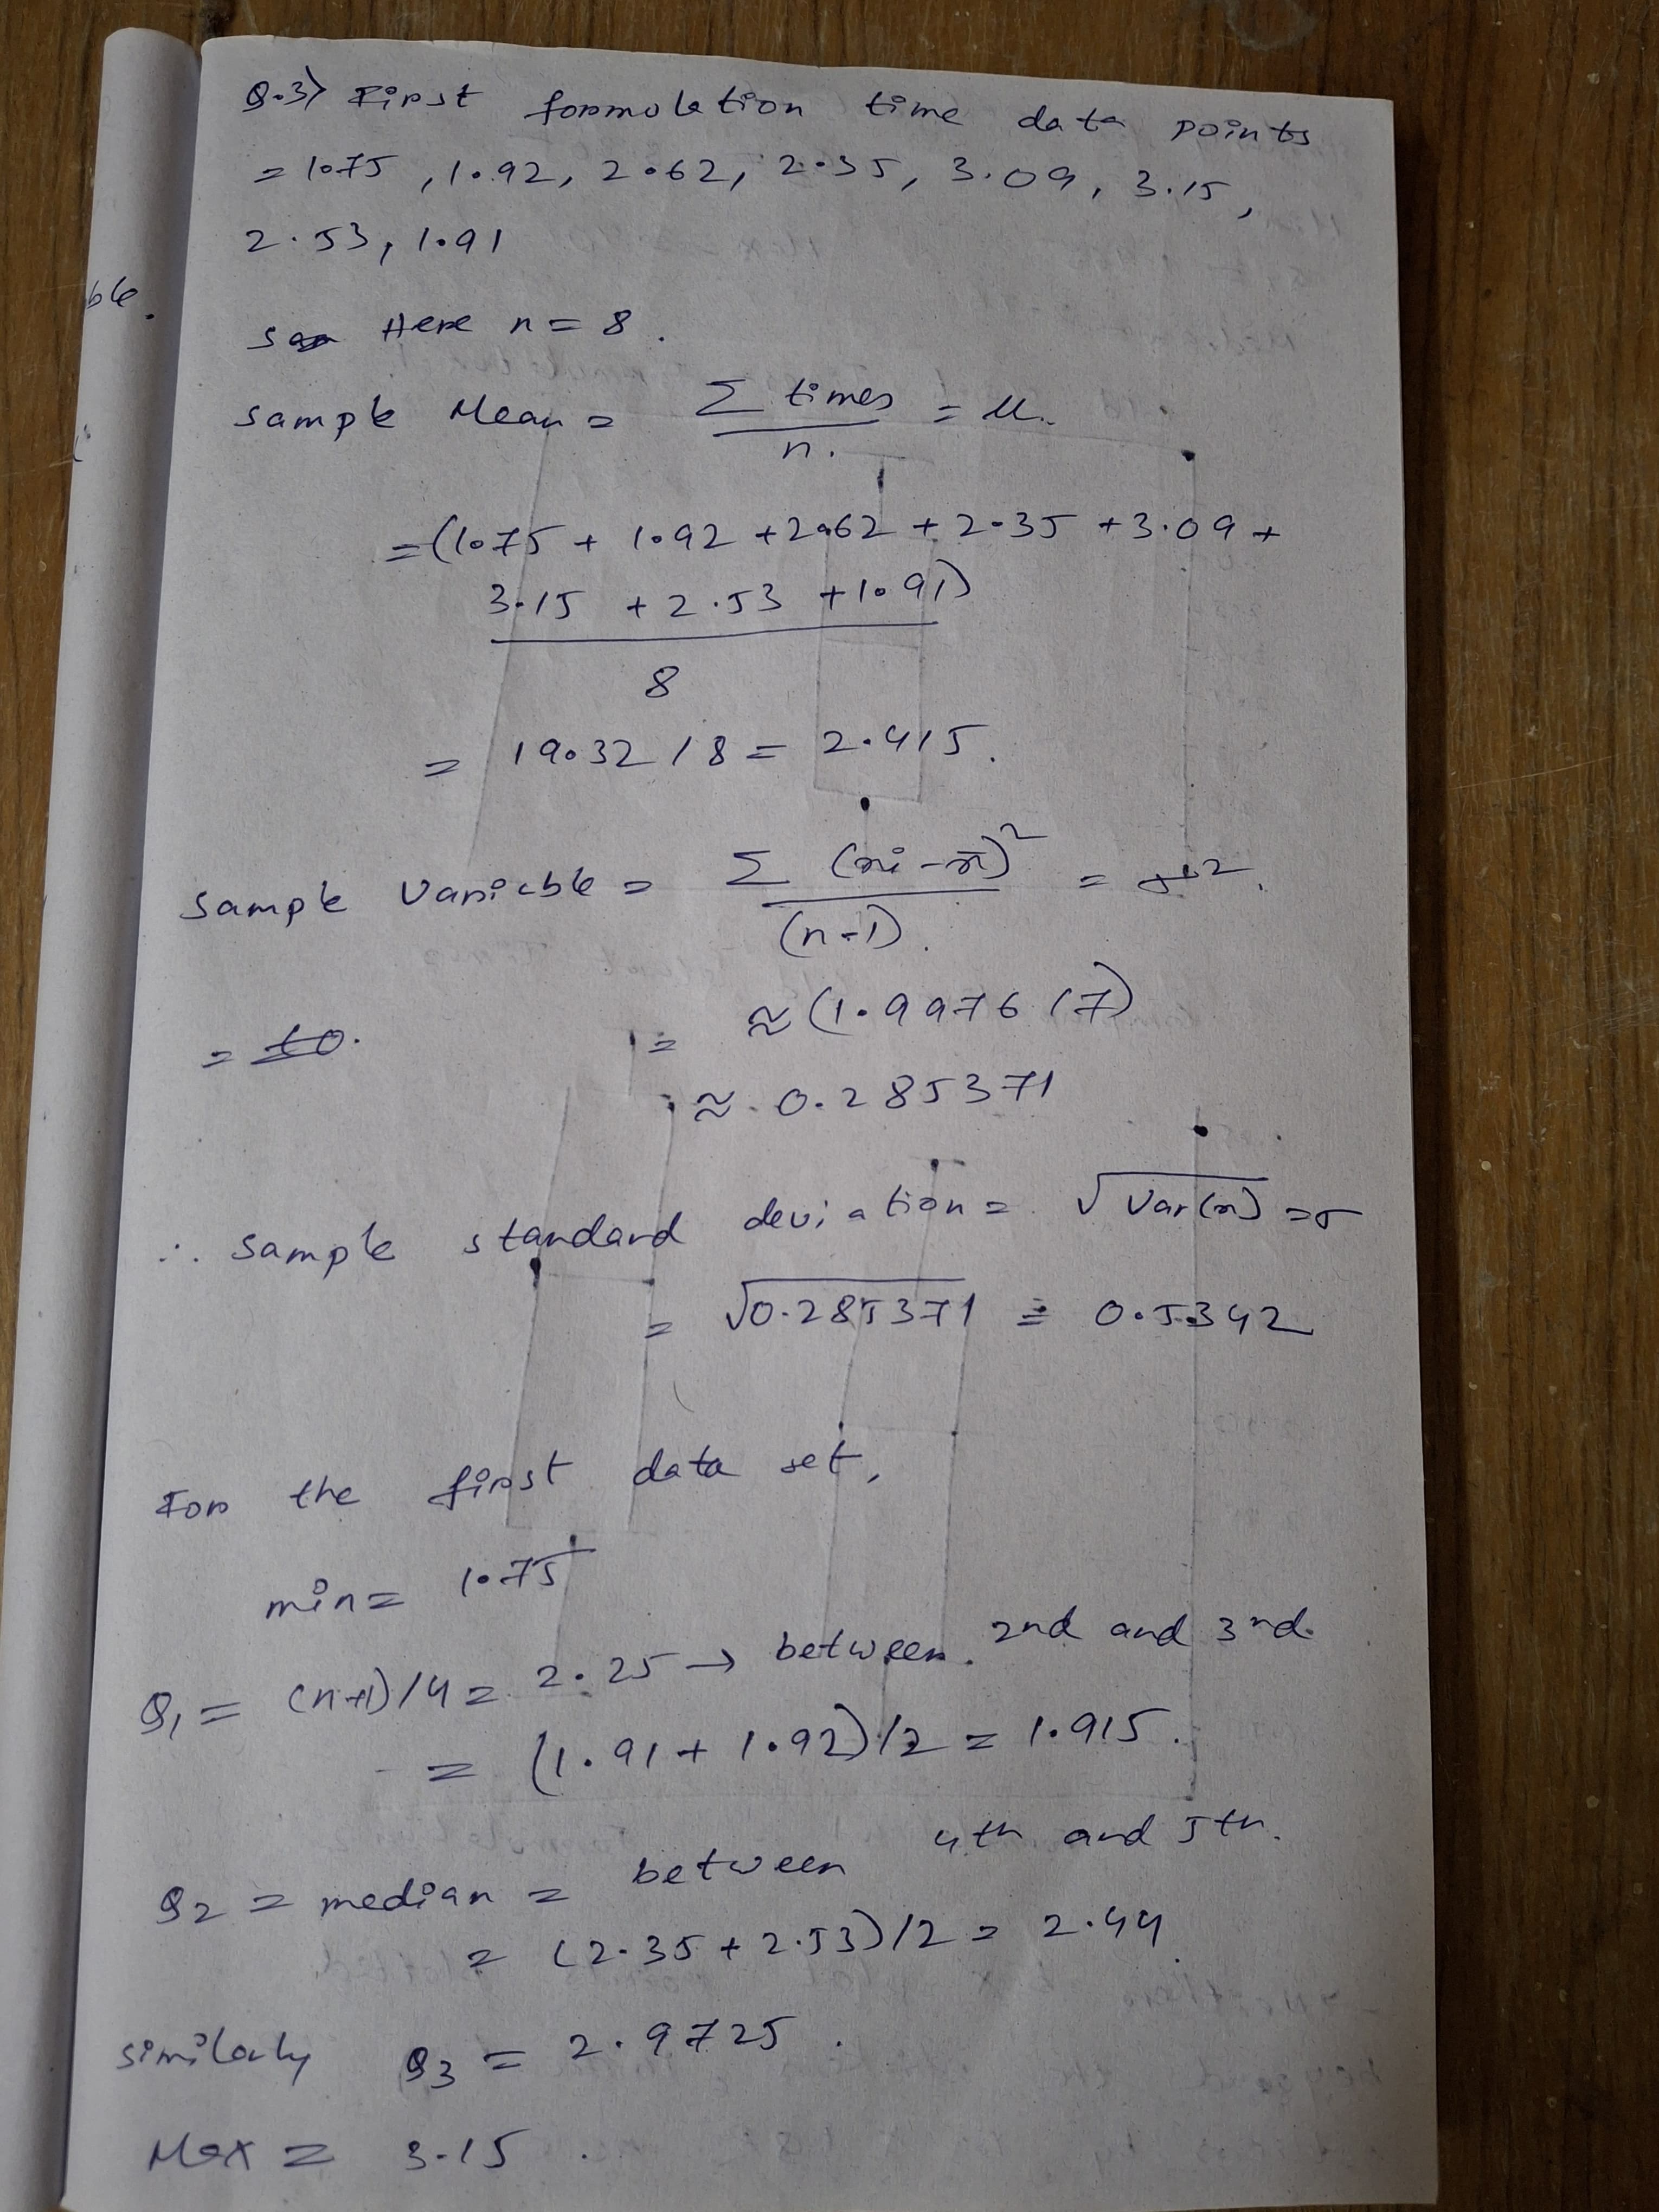 Q.3) First formulation time data points
= 1.75, 1.92, 2.62, 2.35, 3.09, 3.15,
2.53, 1.91
ble.
Here n = 8.
Sample Mean = Σ times / n. = μ.
= (1.75 + 1.92 + 2.62 + 2.35 + 3.09 +
3.15 + 2.53 + 1.91)
8
= 19.32 / 8 = 2.415.
Sample Variable = Σ (xi - x̄)² / (n-1). = σ².
= ≈ (1.9976 / 7)
≈ 0.285371
∴ Sample standard deviation = √Var(x) = σ
= √0.285371 = 0.5342
For the first data set,
min = 1.75
Q1 = (n+1)/4 = 2.25 → between 2nd and 3rd.
= (1.91 + 1.92)/2 = 1.915.
Q2 = median = between 4th and 5th.
= (2.35 + 2.53)/2 = 2.44.
Similarly Q3 = 2.9725.
Max = 3.15.